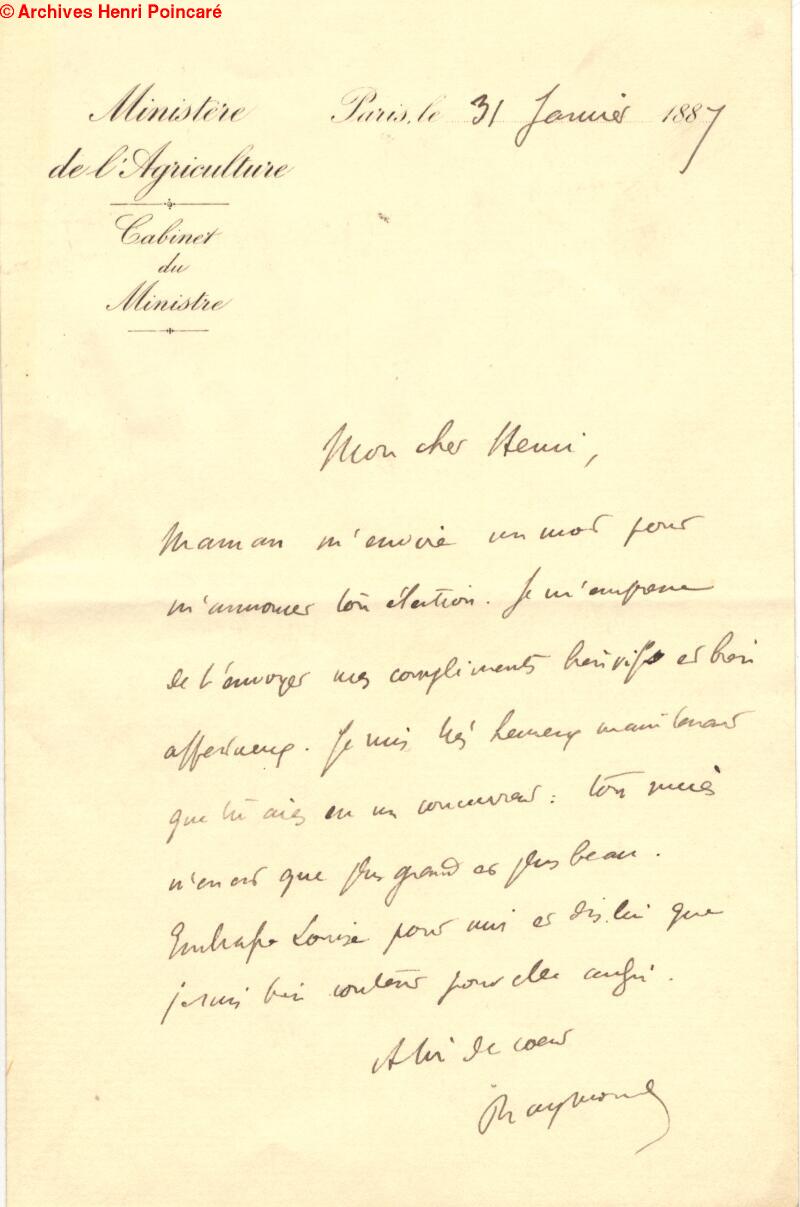 © Archives Henri Poincaré
Ministère
de l'Agriculture
Cabinet
du
Ministre
Paris, le 31 Janvier 1887
Mon cher Henri,
Maman m'envoie un mot pour
m'annoncer ton élection. Je m'empresse
de t'envoyer mes compliments bien vifs et bien
affectueux. Je suis très heureux maintenant
que tu aies eu un concurrent : ton succès
n'en est que plus grand et plus beau.
Embrasse Louise pour moi et dis-lui que
je suis bien content pour elle aussi.
A toi de coeur
Raymond